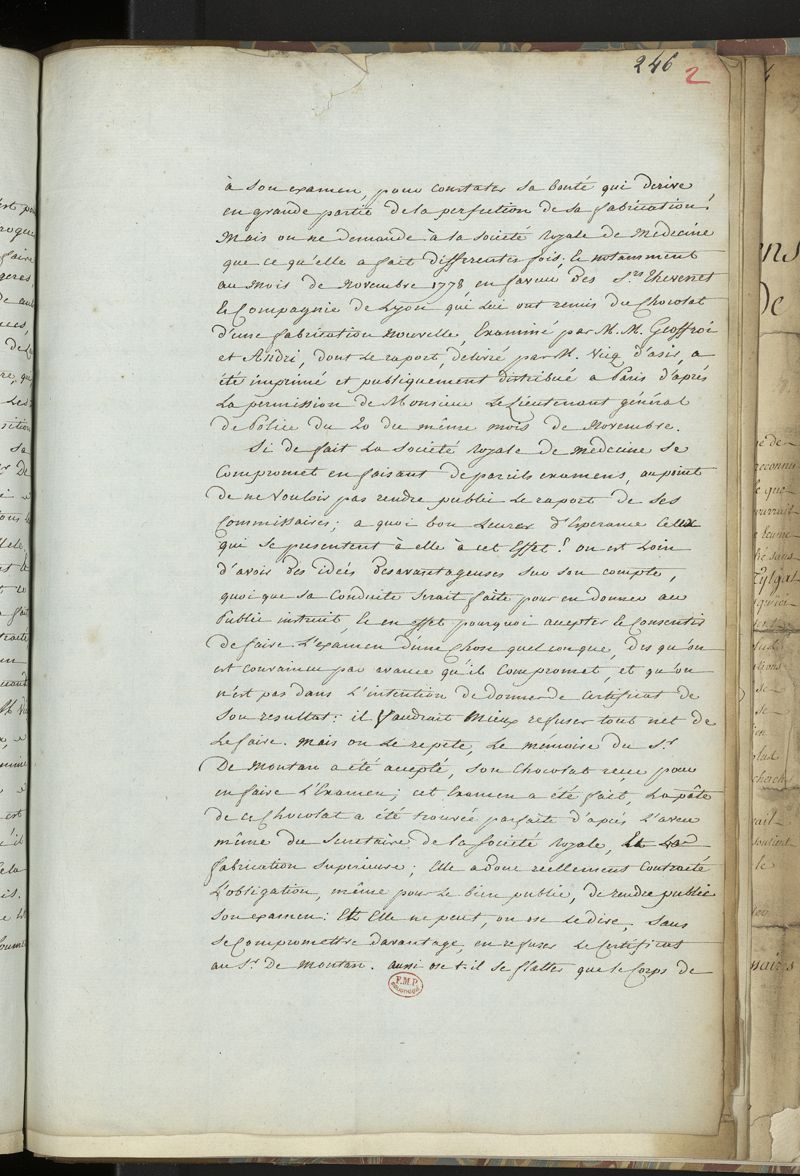 246 2
à son examen, pour constater sa bonté qui derive,
en grande partie de la perfection de sa fabrication.
Mais on ne demande à la société royale de Medecine
que ce qu'elle a fait differentes fois, & notamment
au mois de Novembre 1778 en faveur des S.rs Thevenet
& Compagnie de Lyon qui lui ont remis du Chocolat
d'une fabrication Nouvelle, Examiné par M. M. Geoffroi
et Andri, dont le raport, délivré par M. Vicq d'asir, a
été imprimé et publiquement distribué a Paris d'après
La permission de Monsieur Le Lieutenant général
de Police du 20 du même mois de Novembre.
Si de fait La Société royale de Medecine se
Compromet en faisant de pareils examens, au point
de ne Vouloir pas rendre public le raport de ses
Commissaires; a quoi bon Leurer d'Esperance Ceux
qui se presentent à elle à cet Effet? on est Loin
d'avoir des ideés desavantageuses sur son compte,
quoi que sa Conduite serait faite pour en donner au
Public instruit, & en effet pourquoi accepter & Consentir
de faire L'examen d'une Chose quelconque, des qu'on
est convaincu par avance qu'il Compromet, et qu'on
n'est pas dans L'intention de donner de Certificat de
Son resultat: il Vaudrait Mieux refuser tout net de
Le faire. Mais on Le repete, Le mémoire du S.r
De Montan a été accepté, son Chocolat reçu pour
en faire L'Examen; cet Examen a été fait, La pâte
de ce Chocolat a été trouvée parfaite d'après L'aveu
même du Secretaire de la Société royale, Et La
fabrication superieure; Elle a donc reellement Contracté
L'obligation, même pour le bien public, de rendre public
son examen: Et Elle ne peut, on ose le dire, sans
se Compromettre davantage, en refuser le Certificat
au S.r De Montan. aussi ose t-il se flatter que le Corps de
F.M.P.
BIBLIOTHEQUE